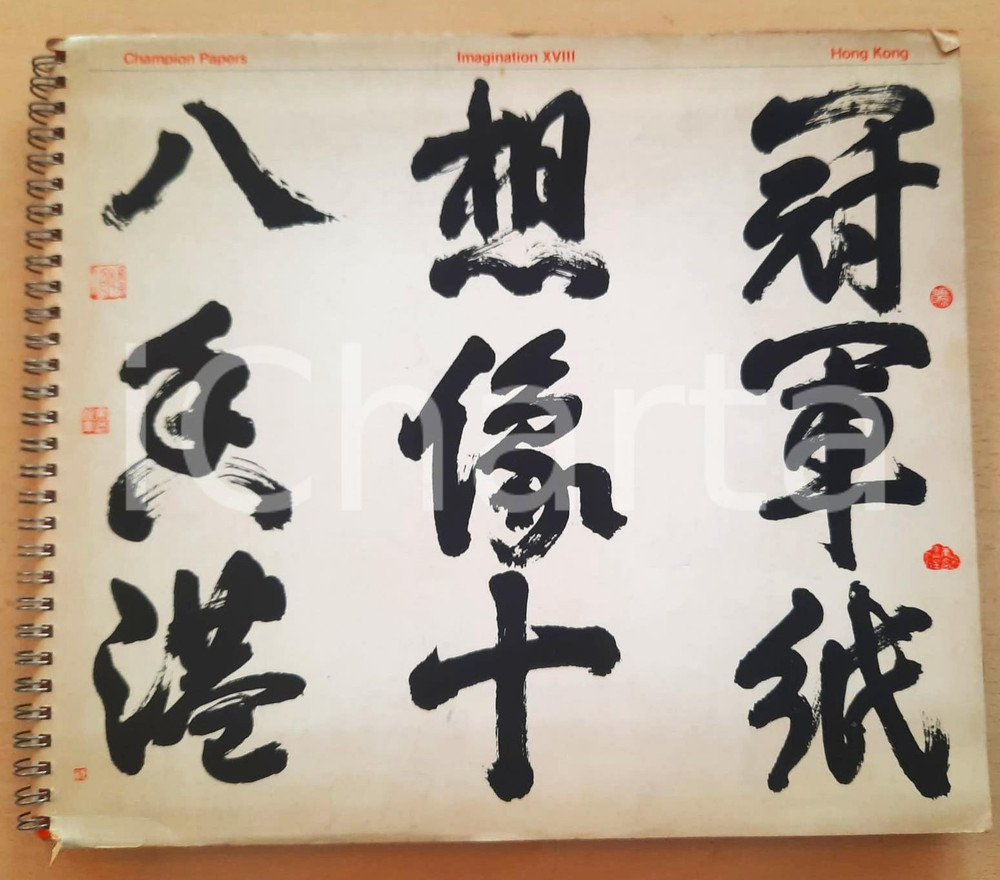 Champion Papers
Imagination XVIII
Hong Kong
冠軍紙
想像十
八香港
iCharta